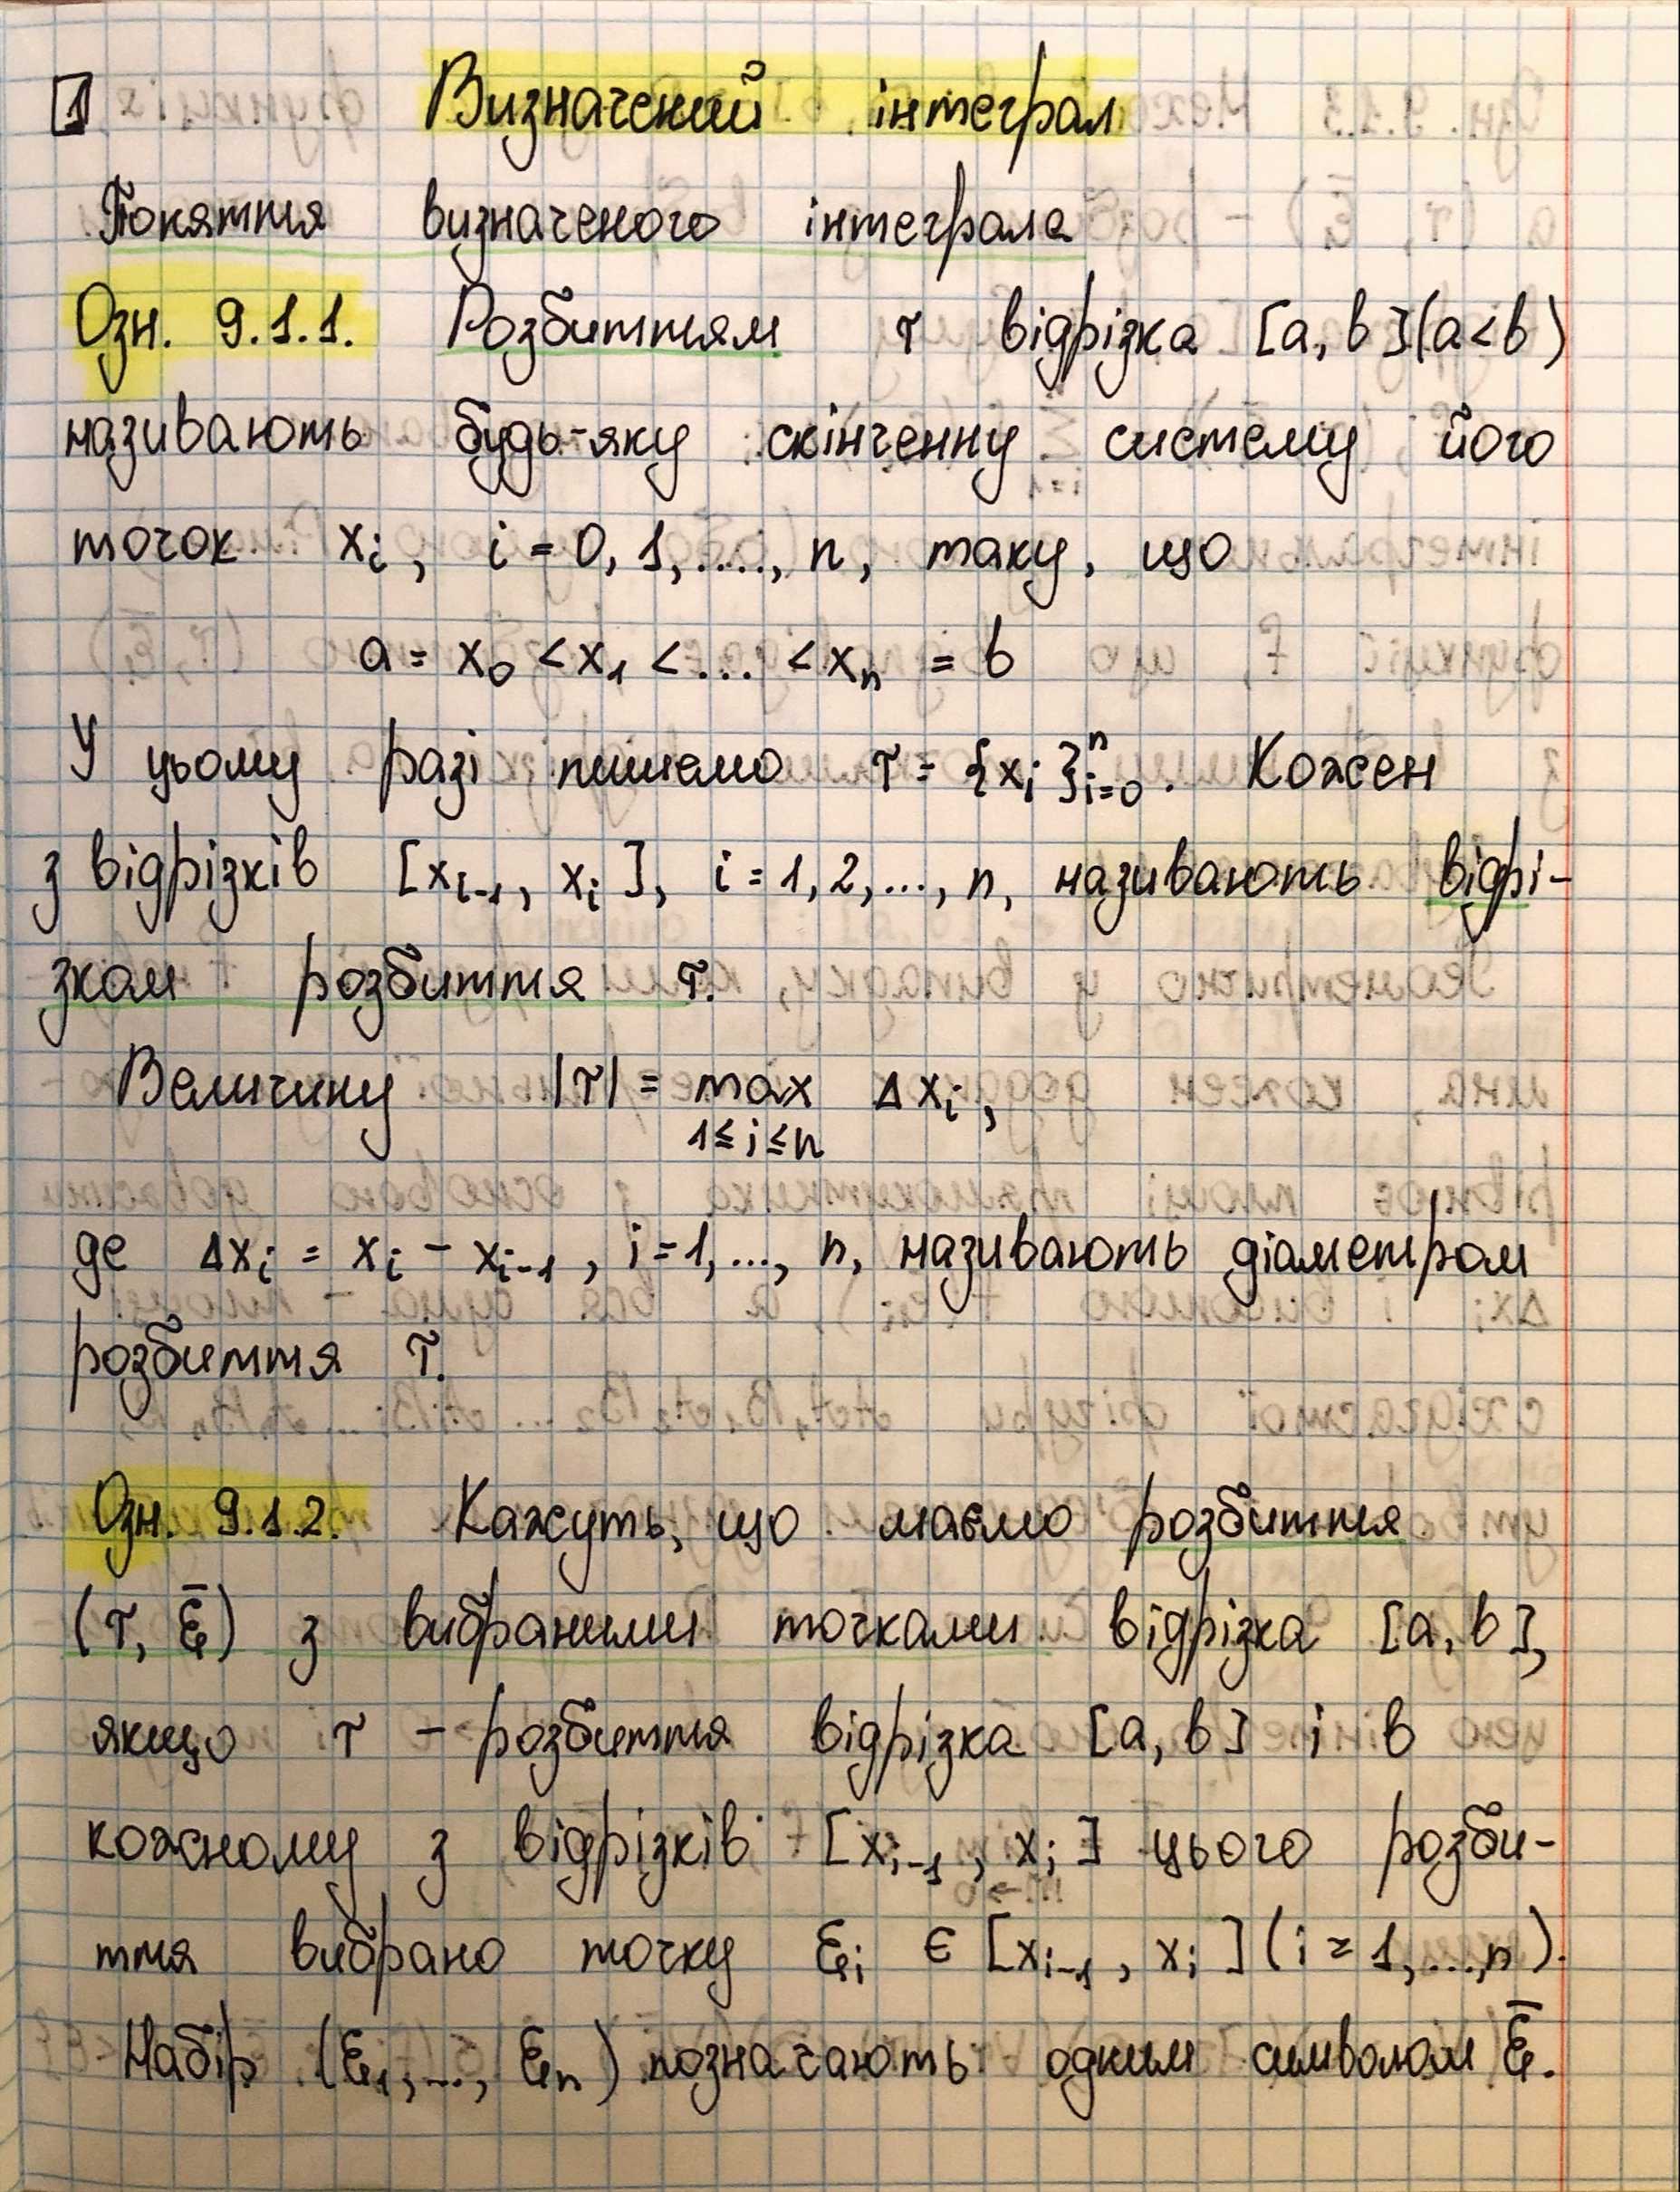 1 Визначений інтеграл
Поняття визначеного інтеграла
Озн. 9.1.1. Розбиттям τ відрізка [a, b] (a < b)
називають будь-яку скінченну систему його
точок xᵢ, i = 0, 1, ...., n, таку, що
a = x₀ < x₁ < ... < xₙ = b
У цьому разі пишемо τ = {xᵢ}ⁿᵢ₌₀. Кожен
з відрізків [xᵢ₋₁, xᵢ], i = 1, 2, ..., n, називають відрі-
зком розбиття τ.
Величину |τ| = max Δxᵢ,
1 ≤ i ≤ n
де Δxᵢ = xᵢ - xᵢ₋₁, i = 1, ..., n, називають діаметром
розбиття τ.
Озн. 9.1.2. Кажуть, що маємо розбиття
(τ, ξ̄) з вибраними точками відрізка [a, b],
якщо τ - розбиття відрізка [a, b] і в
кожному з відрізків [xᵢ₋₁, xᵢ] цього розби-
ття вибрано точку ξᵢ ∈ [xᵢ₋₁, xᵢ] (i = 1, ..., n).
Набір (ξ₁, ..., ξₙ) позначають одним символом ξ̄.